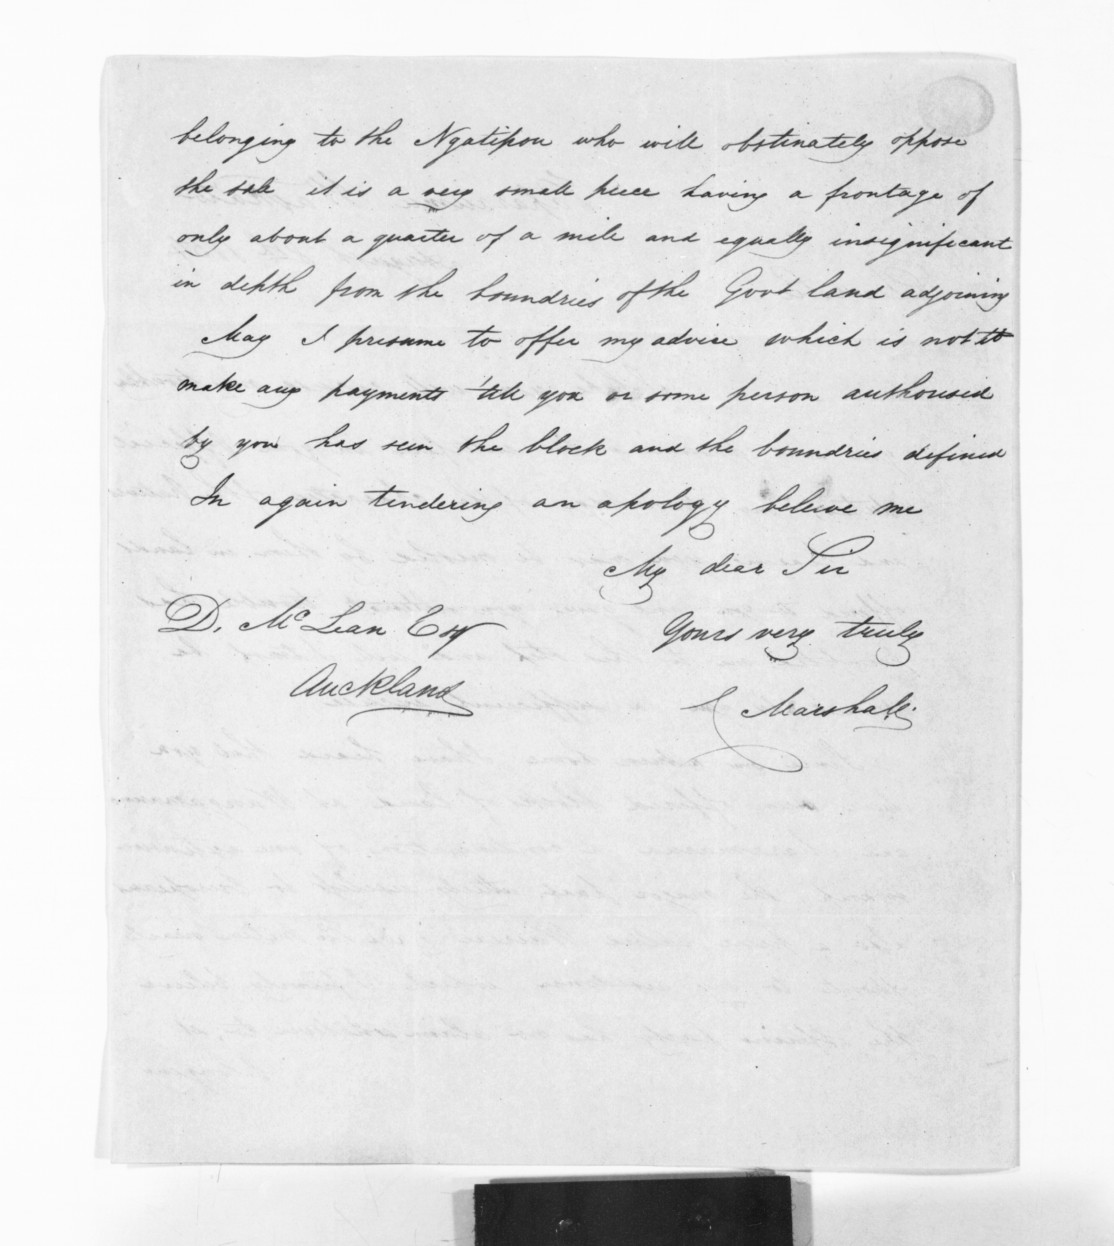 belonging to the Ngatipou who will obstinately oppose
the sale it is a very small peice having a frontage of
only about a quarter of a mile and equally insignificant
in depth from the boundries of the Govt land adjoining
May I presume to offer my advice which is not to
make any payments 'till you or some person authorised
by you has seen the block and the boundries defined
In again tendering an apology beleive me
My dear Sir
Yours very truly
D. McLean Esq
Auckland
Marshall